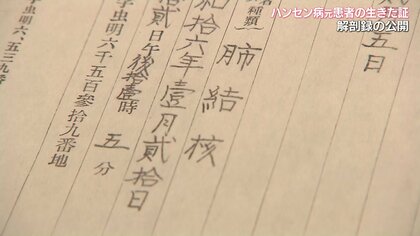 ハンセン病元患者の生きた証
解剖録の公開
五日
種類
肺結核
和拾六年壹月貳拾日
貳日午後拾壹時五分
字虫明六千五百參拾九番地
虫明六、五三九番